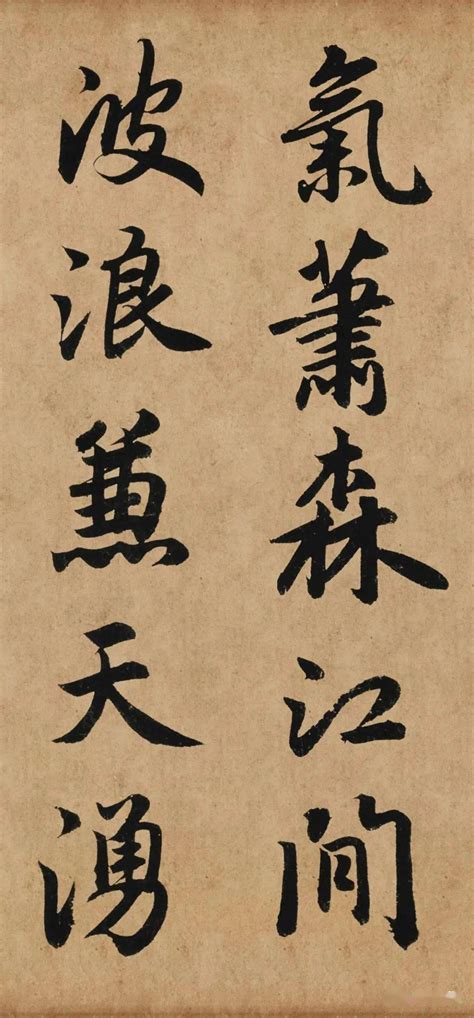 氣蕭森江間
波浪兼天湧